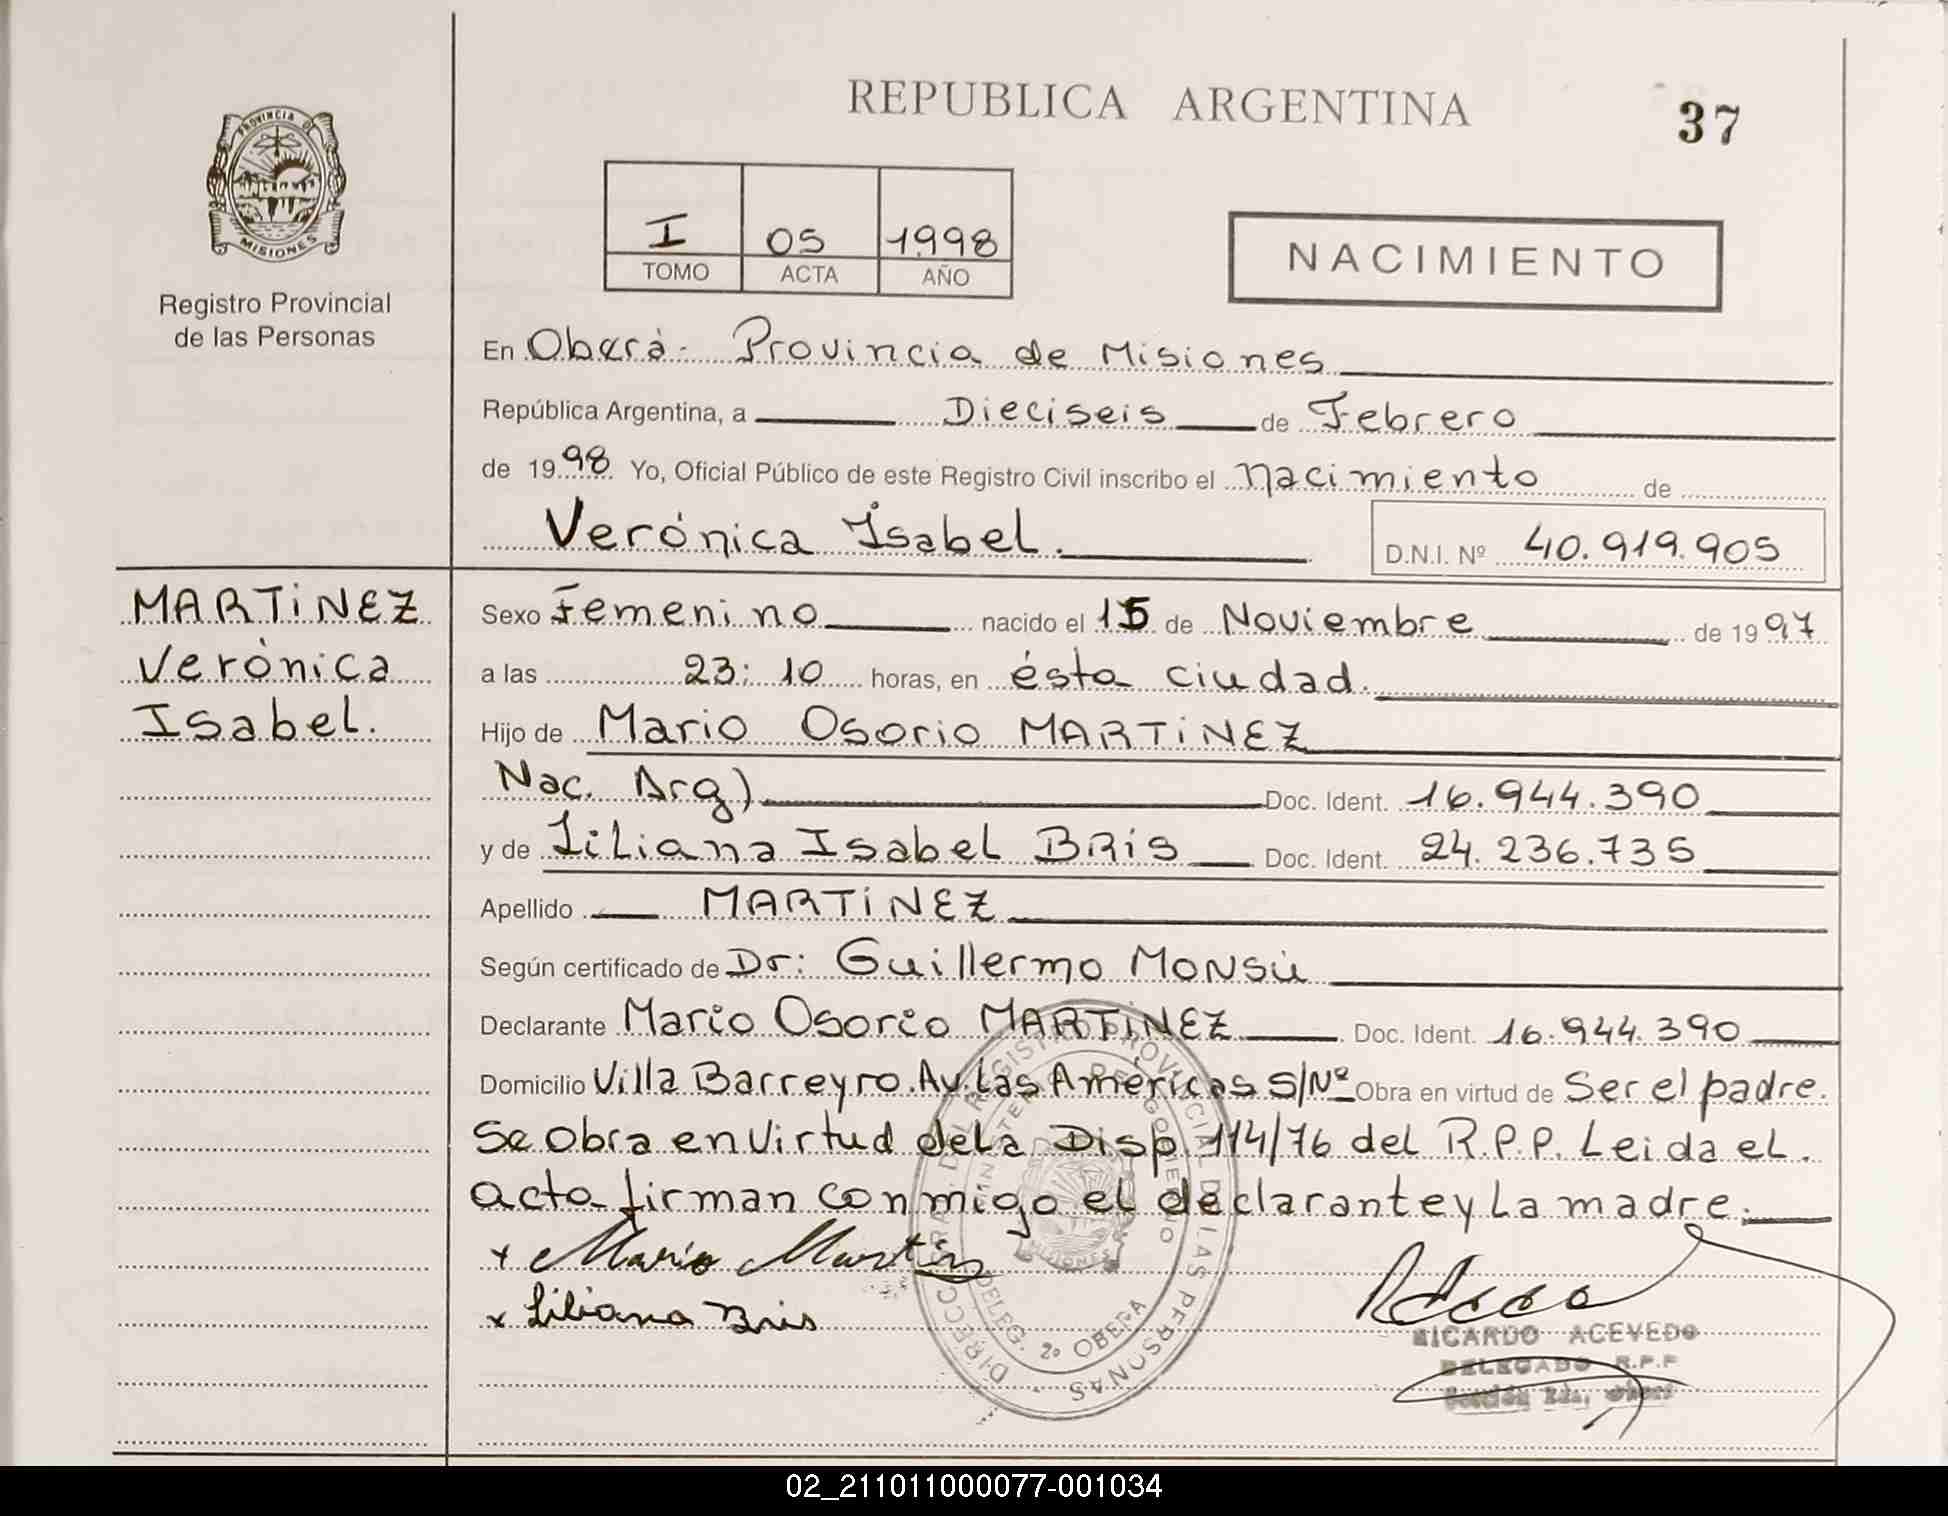 REPUBLICA ARGENTINA
37
PROVINCIA DE
MISIONES
Registro Provincial
de las Personas
I 05 1.998
TOMO ACTA AÑO
NACIMIENTO
En Oberá - Provincia de Misiones
República Argentina, a Dieciseis de Febrero
de 1998 Yo, Oficial Público de este Registro Civil inscribo el Nacimiento de
Verónica Isabel. D.N.I. Nº 40.919.905
MARTiNEZ
Verónica
Isabel.
Sexo Femenino nacido el 15 de Noviembre de 1997
a las 23:10 horas, en ésta ciudad.
Hijo de Mario Osorio MARTiNEZ
Nac. Arg) Doc. Ident. 16.944.390
y de Liliana Isabel BRiS Doc. Ident. 24.236.735
Apellido MARTiNEZ
Según certificado de Dr: Guillermo MONSú
Declarante Mario Osorio MARTiNEZ Doc. Ident. 16.944.390
Domicilio Villa Barreyro. Av. Las Américas S/Nº Obra en virtud de Ser el padre.
Se obra en virtud de la Disp. 114/76 del R.P.P. Leida el
acta firman conmigo el declarante y La madre.
x Mario Martin
x Liliana Bris
DIRECC. GRAL. DEL REGISTRO PROVINCIAL DE LAS PERSONAS
DELEG. 2º OBERA
RICARDO ACEVEDO
DELEGADO R.P.P
Sección 2da, Oberá
02_211011000077-001034